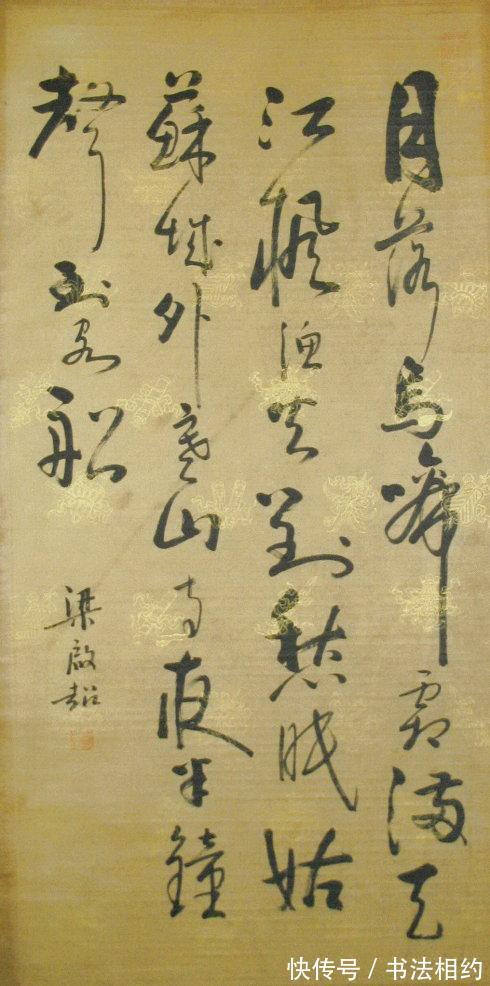 月落烏啼霜滿天
江楓漁火對愁眠姑
蘇城外寒山寺夜半鐘
聲到客船
梁啟超
快传号 / 书法相约